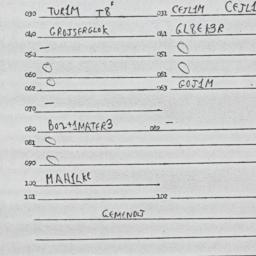 030 TUR1M T8 031 CEJL1M CEJL
040 GROJSERGLOK 041 GL8EK3R
050 — 051 O
060 O 061 O
062 O 063 GOJ1M
070 —
080 BO2+1MATER3 082 —
081 O
090 O
100 MAH1LKE
101 102
GEMENDJ